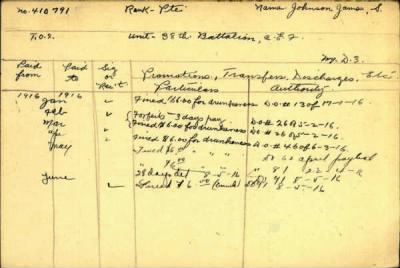 No. 410791 Rank- Pte Name Johnson James, S.
T.O.S. Unit- 38th Battalion, C.E.F.
M.D. 3.
Paid from Paid to Sig or Rec't Promotions, Transfers, Discharges, Etc.
Particulars Authority
1916 1916
Jan Fined $6.00 for drunkenness D.O.# 13 of 17-1-16
Feb Forfeits - 3 days pay
Mar Fined $6.00 for drunkenness D.O.# 26 5-2-16.
Apr D.O.# 26 5-2-16.
May Fined $6.00 for drunkenness D.O.# 46 of 6-3-16.
Fined $6.00 " " " April paylist
" " " " 81 22-4-16
June 28 days det 8-5-16 91 8-5-16
Fined $6.00 (drunk) 91 8-5-16